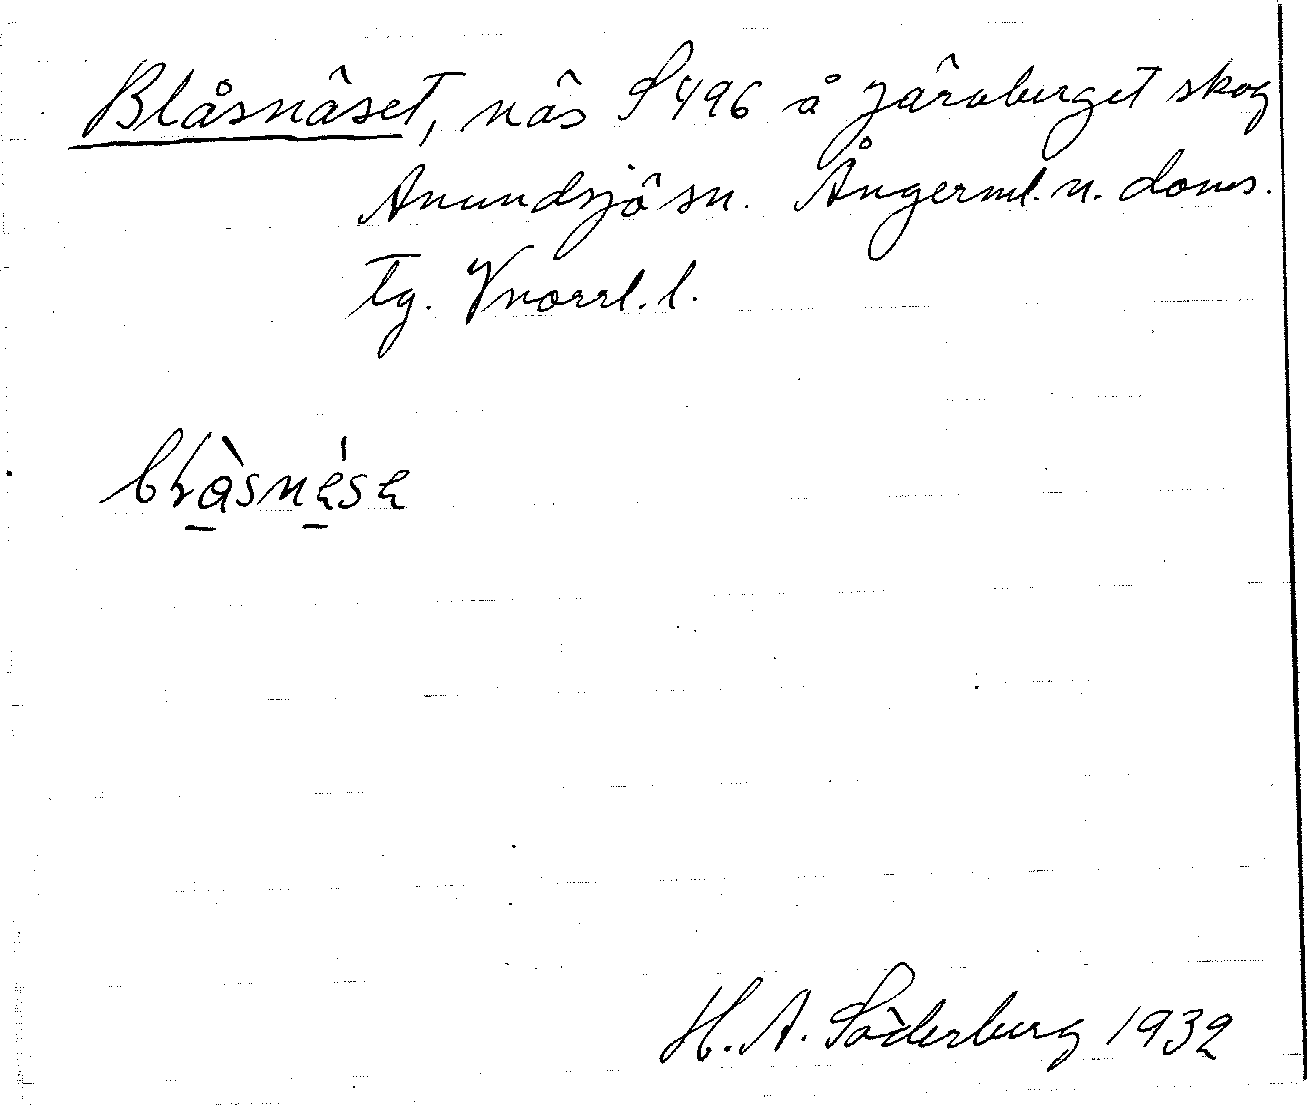 Blåsnäset, näs S 496 å Järnberget skog
Anundsjö sn. Ångerml. n. doms.
tg. Vnorrl. l.
blàsnése
H. A. Söderberg 1932